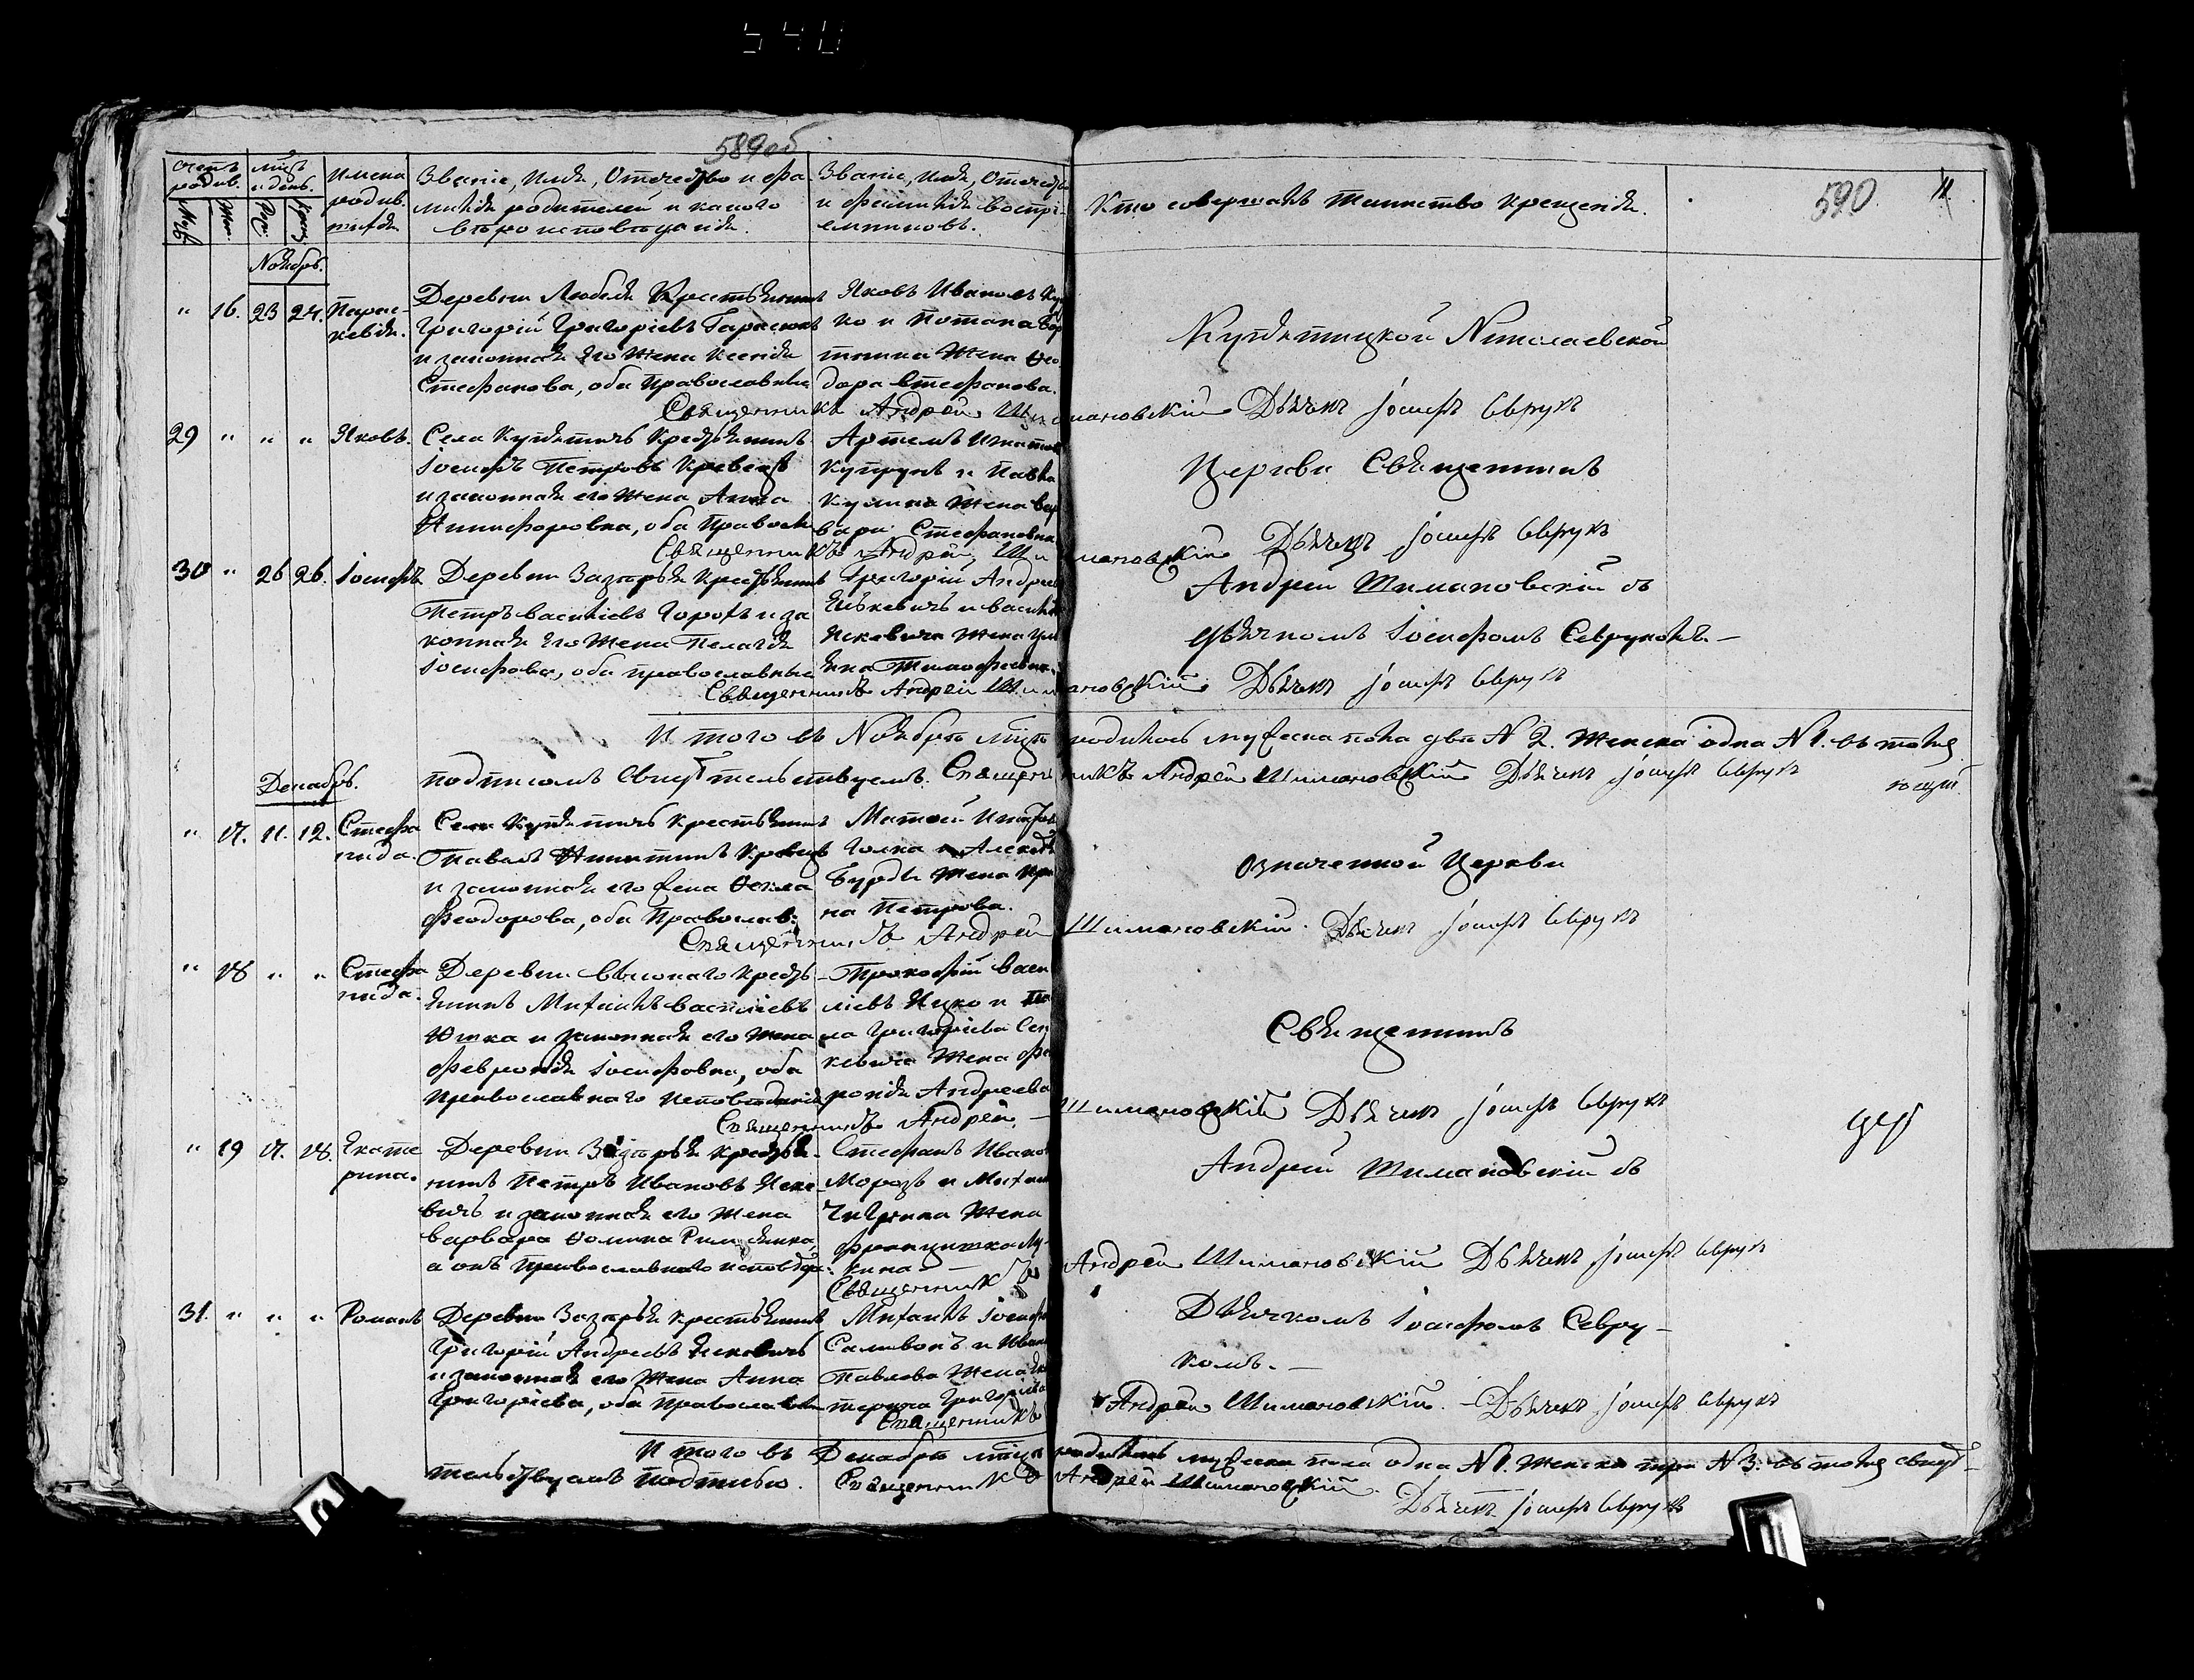 540
589об
Счетъ родив.
мцъ и день.
Имена родив.
Званіе, Имя, Отечество и фа
милія родителей и какого
вѣроисповѣданія.
Званіе, Имя, Отечество
и фамилія воспрі-
емниковъ.
Кто совершалъ таинство крещенія.
590
11.
Ноябрь.
" 16. 23 24. Парас-
кевія.
Деревни Любеля Крестьянинъ
Григорій Григорьевъ Гарасюкъ
и законная его жена Ксенія
Стефанова, оба православные
Яковъ Ивановъ
ко и Потапа
жена Ѳео
дора Стефанова.
Купятицкой Николаевской
Священникъ Андрей Шимановскій Дьячекъ Іосифъ Севрукъ
29 " " " Яковъ.
Села Купятичъ Крестьянинъ
Іосифъ Петровъ Кревецъ
и законная его жена Анна
Никифоровна, оба Правосл
Артемъ
Купрукъ и Павла
Кулика жена Вар
вара Стефановна
Церкви Священникъ
Священникъ Андрей Шимановскій Дьячекъ Іосифъ Севрукъ
30 " 26 26. Іосифъ
Деревни Заз��рья Крестьянинъ
Петръ Васильевъ Горохъ и за
конная его жена Пелагія
Іосифова, оба православные
Григорій Андреев
и Василія
жена Уль
яна Тимофеевна.
Андрей Шимановскій съ
дьячкомъ Іосифомъ Севрукомъ.—
Священникъ Андрей Шимановскій Дьячекъ Іосифъ Севрукъ
И того въ Ноябрѣ мцѣ родилось мужеска пола два N 2. женска одна N 1. въ томъ
подписомъ свидѣтельствуемъ. Священникъ Андрей Шимановскій Дьячекъ Іосифъ Севрукъ
Декабрь.
" 17. 11. 12. Стефа
нида.
Села Купятичъ Крестьянинъ
Павелъ Никитинъ Кревецъ
и законная его жена Ѳекла
Феодорова, оба Православ:
Матѳей
Голка и Александра
Бурды жена Ири
на Петрова.
означенной Церкви
Священникъ Андрей Шимановскій. Дьячекъ Іосифъ Севрукъ
" 18 " " Стефа
нида.
Деревни Высокаго Кресть
янинъ Михаилъ Васильевъ
Юшка и законная его жена
Февронія Іосифовна, оба
православнаго исповѣданія
Прокофій Васи
льевъ Яцко и
ла Григорьева
жена Фев
ронія Андреева
Священникъ
Священникъ Андрей Шимановскій Дьячекъ Іосифъ Севрукъ
" 19 17. 18. Екате
рина.
Крестья-
нинъ Петръ Ивановъ Яске-
вичъ и законная его жена
Варвара Ѳомина Римлянка
а онъ православнаго исповѣдан:
Стефанъ Иванов
Морозъ и Михаила
Чигрина жена
Францишка Лу-
кина —
Андрей Шимановскій съ
Священникъ Андрей Шимановскій Дьячекъ Іосифъ Севрукъ
31. " " " Романъ
Крестьянинъ
Григорій Андреевъ Яскевичъ
и законная его жена Анна
Григорьева, оба православн
Михаилъ Іосифов
и Ивана
Павлова жена Ека
терина Григорьева
Дьячкомъ Іосифомъ Севру-
комъ.—
Священникъ Андрей Шимановскій. Дьячекъ Іосифъ Севрукъ
И того въ Декабрѣ мцѣ родилось мужеска пола одна N 1. женска три N 3. въ томъ свидѣ-
тельствуемъ подписью. Священникъ Андрей Шимановскій.
Дьячекъ Іосифъ Севрукъ